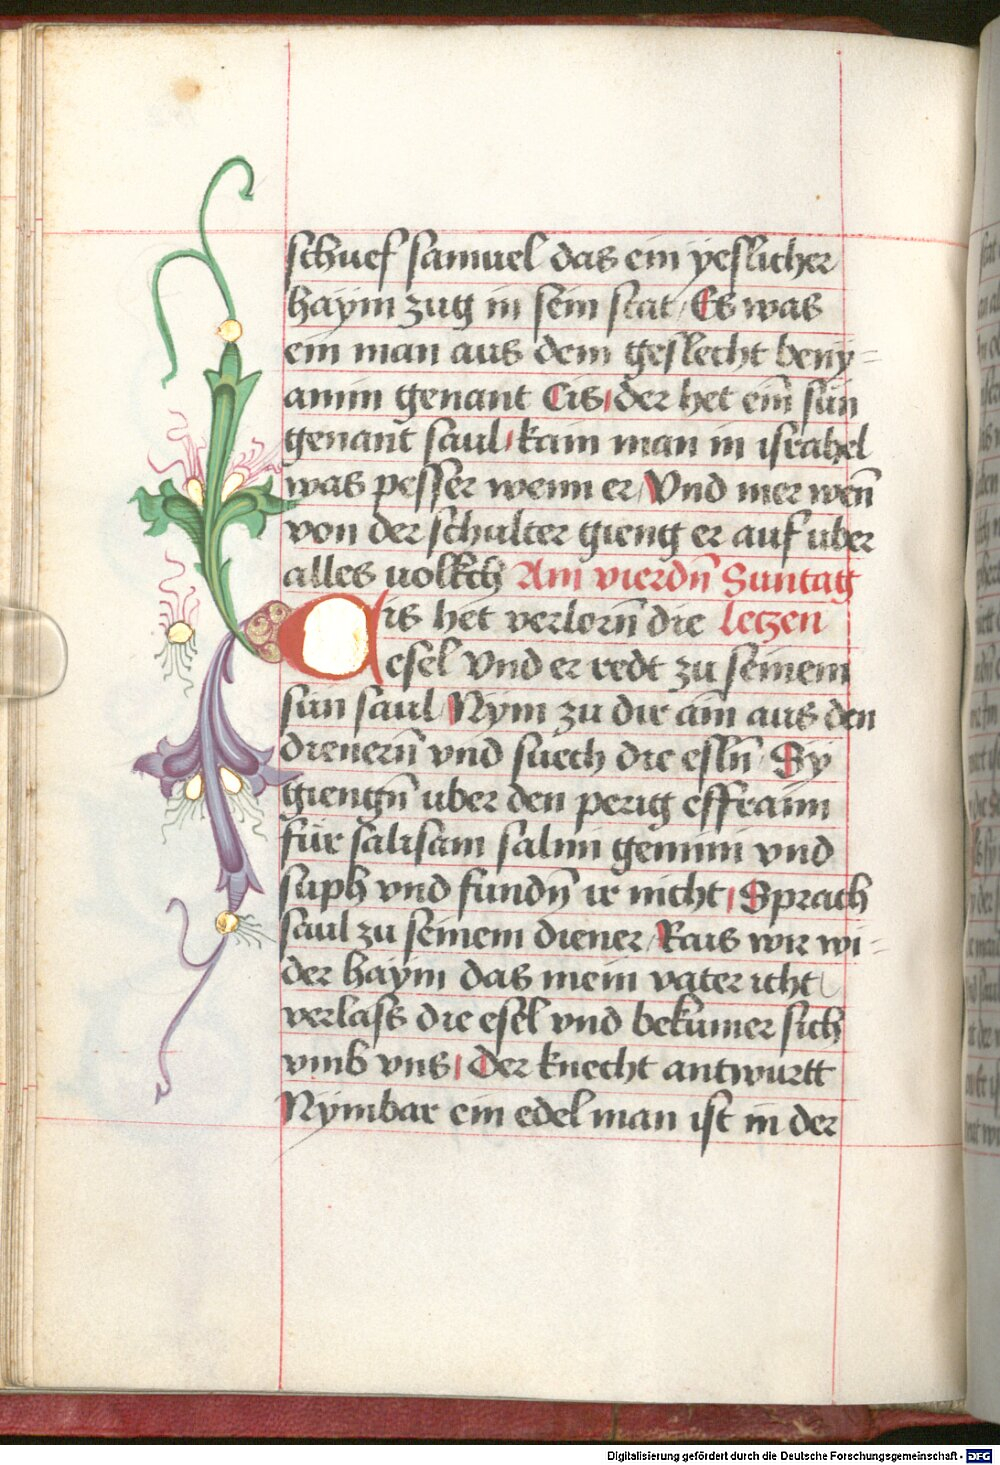 schuef samuel das ein yeslicher
haym zug in sein stat Es was
ein man aus dem geslecht beny=
amin genant Cis der het eim̄ sun
genant saul kain man in israhel
was pesser wenn er Vnd mer wen̄
von der schulter gieng er auf uber
alles uolkch Am vierdn̄ Suntag
Cis het verlorn̄ die letzen
esel Vnd er redt zu seinem
sun saul Nym zu dir ain aus den
dienern̄ vnd suech die esln̄ Sy
giengn̄ uber den perig effraim
für salisam salim gemini vnd
suph vnd fundn̄ ir nicht Sprach
saul zu seinem diener Kaus wir wi=
der haym das mein vater icht
verlass die esel vnd bekumer sich
vmb vns Der knecht antwurtt
Nymbar ein edel man ist in der
Digitalisierung gefördert durch die Deutsche Forschungsgemeinschaft - DFG